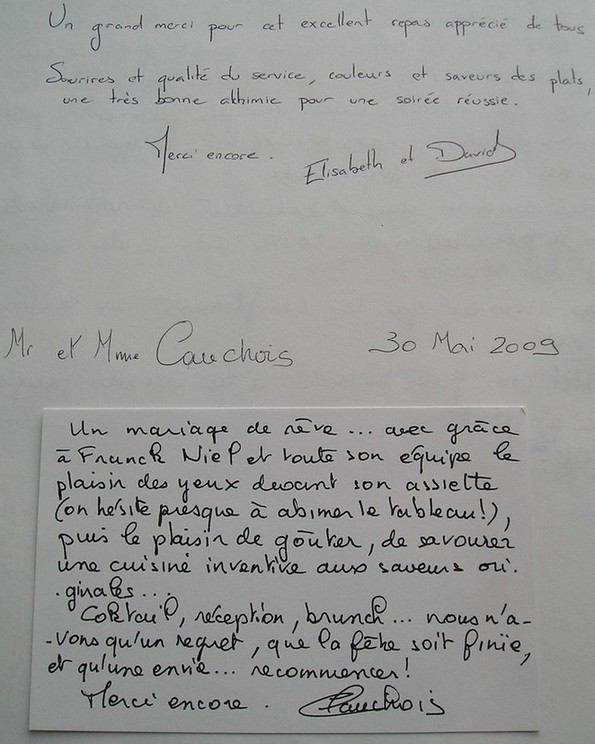 Un grand merci pour cet excellent repas apprécié de tous
Sourires et qualité du service, couleurs et saveurs des plats,
une très bonne alchimie pour une soirée réussie.
Merci encore. Elisabeth et David
Mr et Mme Cauchois 30 Mai 2009
Un mariage de rêve... avec grâce
à Franck Niel et toute son équipe le
plaisir des yeux devant son assiette
(on hésite presque à abîmer le tableau!),
puis le plaisir de goûter, de savourer
une cuisine inventive aux saveurs ori.
.ginales...
Cocktail, réception, brunch... nous n'a-
-vons qu'un regret, que la fête soit finie,
et qu'une envie... recommencer!
Merci encore. Cauchois